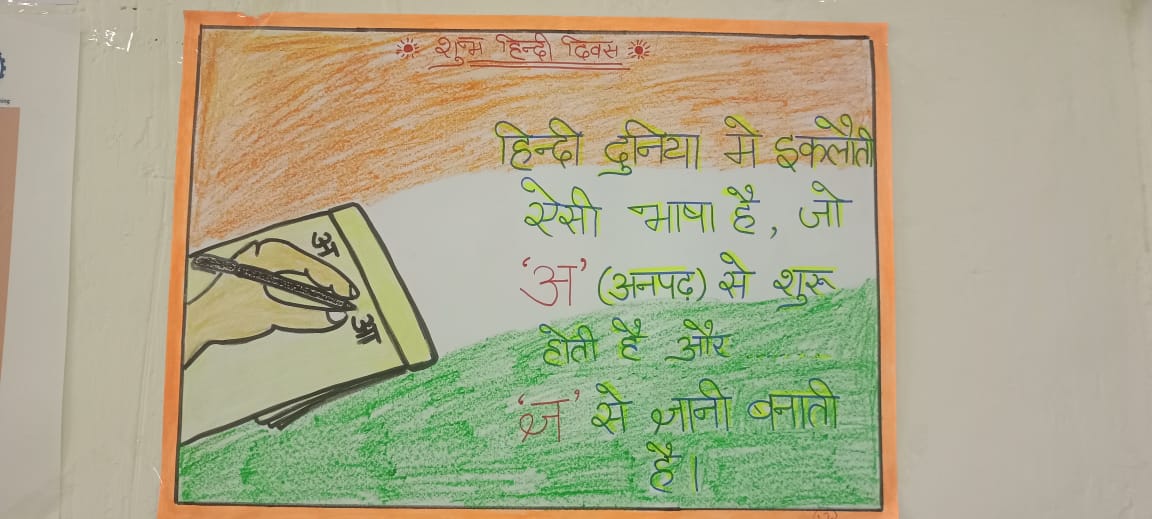 शुभ हिन्दी दिवस
हिन्दी दुनिया मे इकलौती
ऐसी भाषा है, जो
'अ' (अनपढ़) से शुरू
होती है और ........
'ज्ञ' से ज्ञानी बनाती
है।
अ
आ